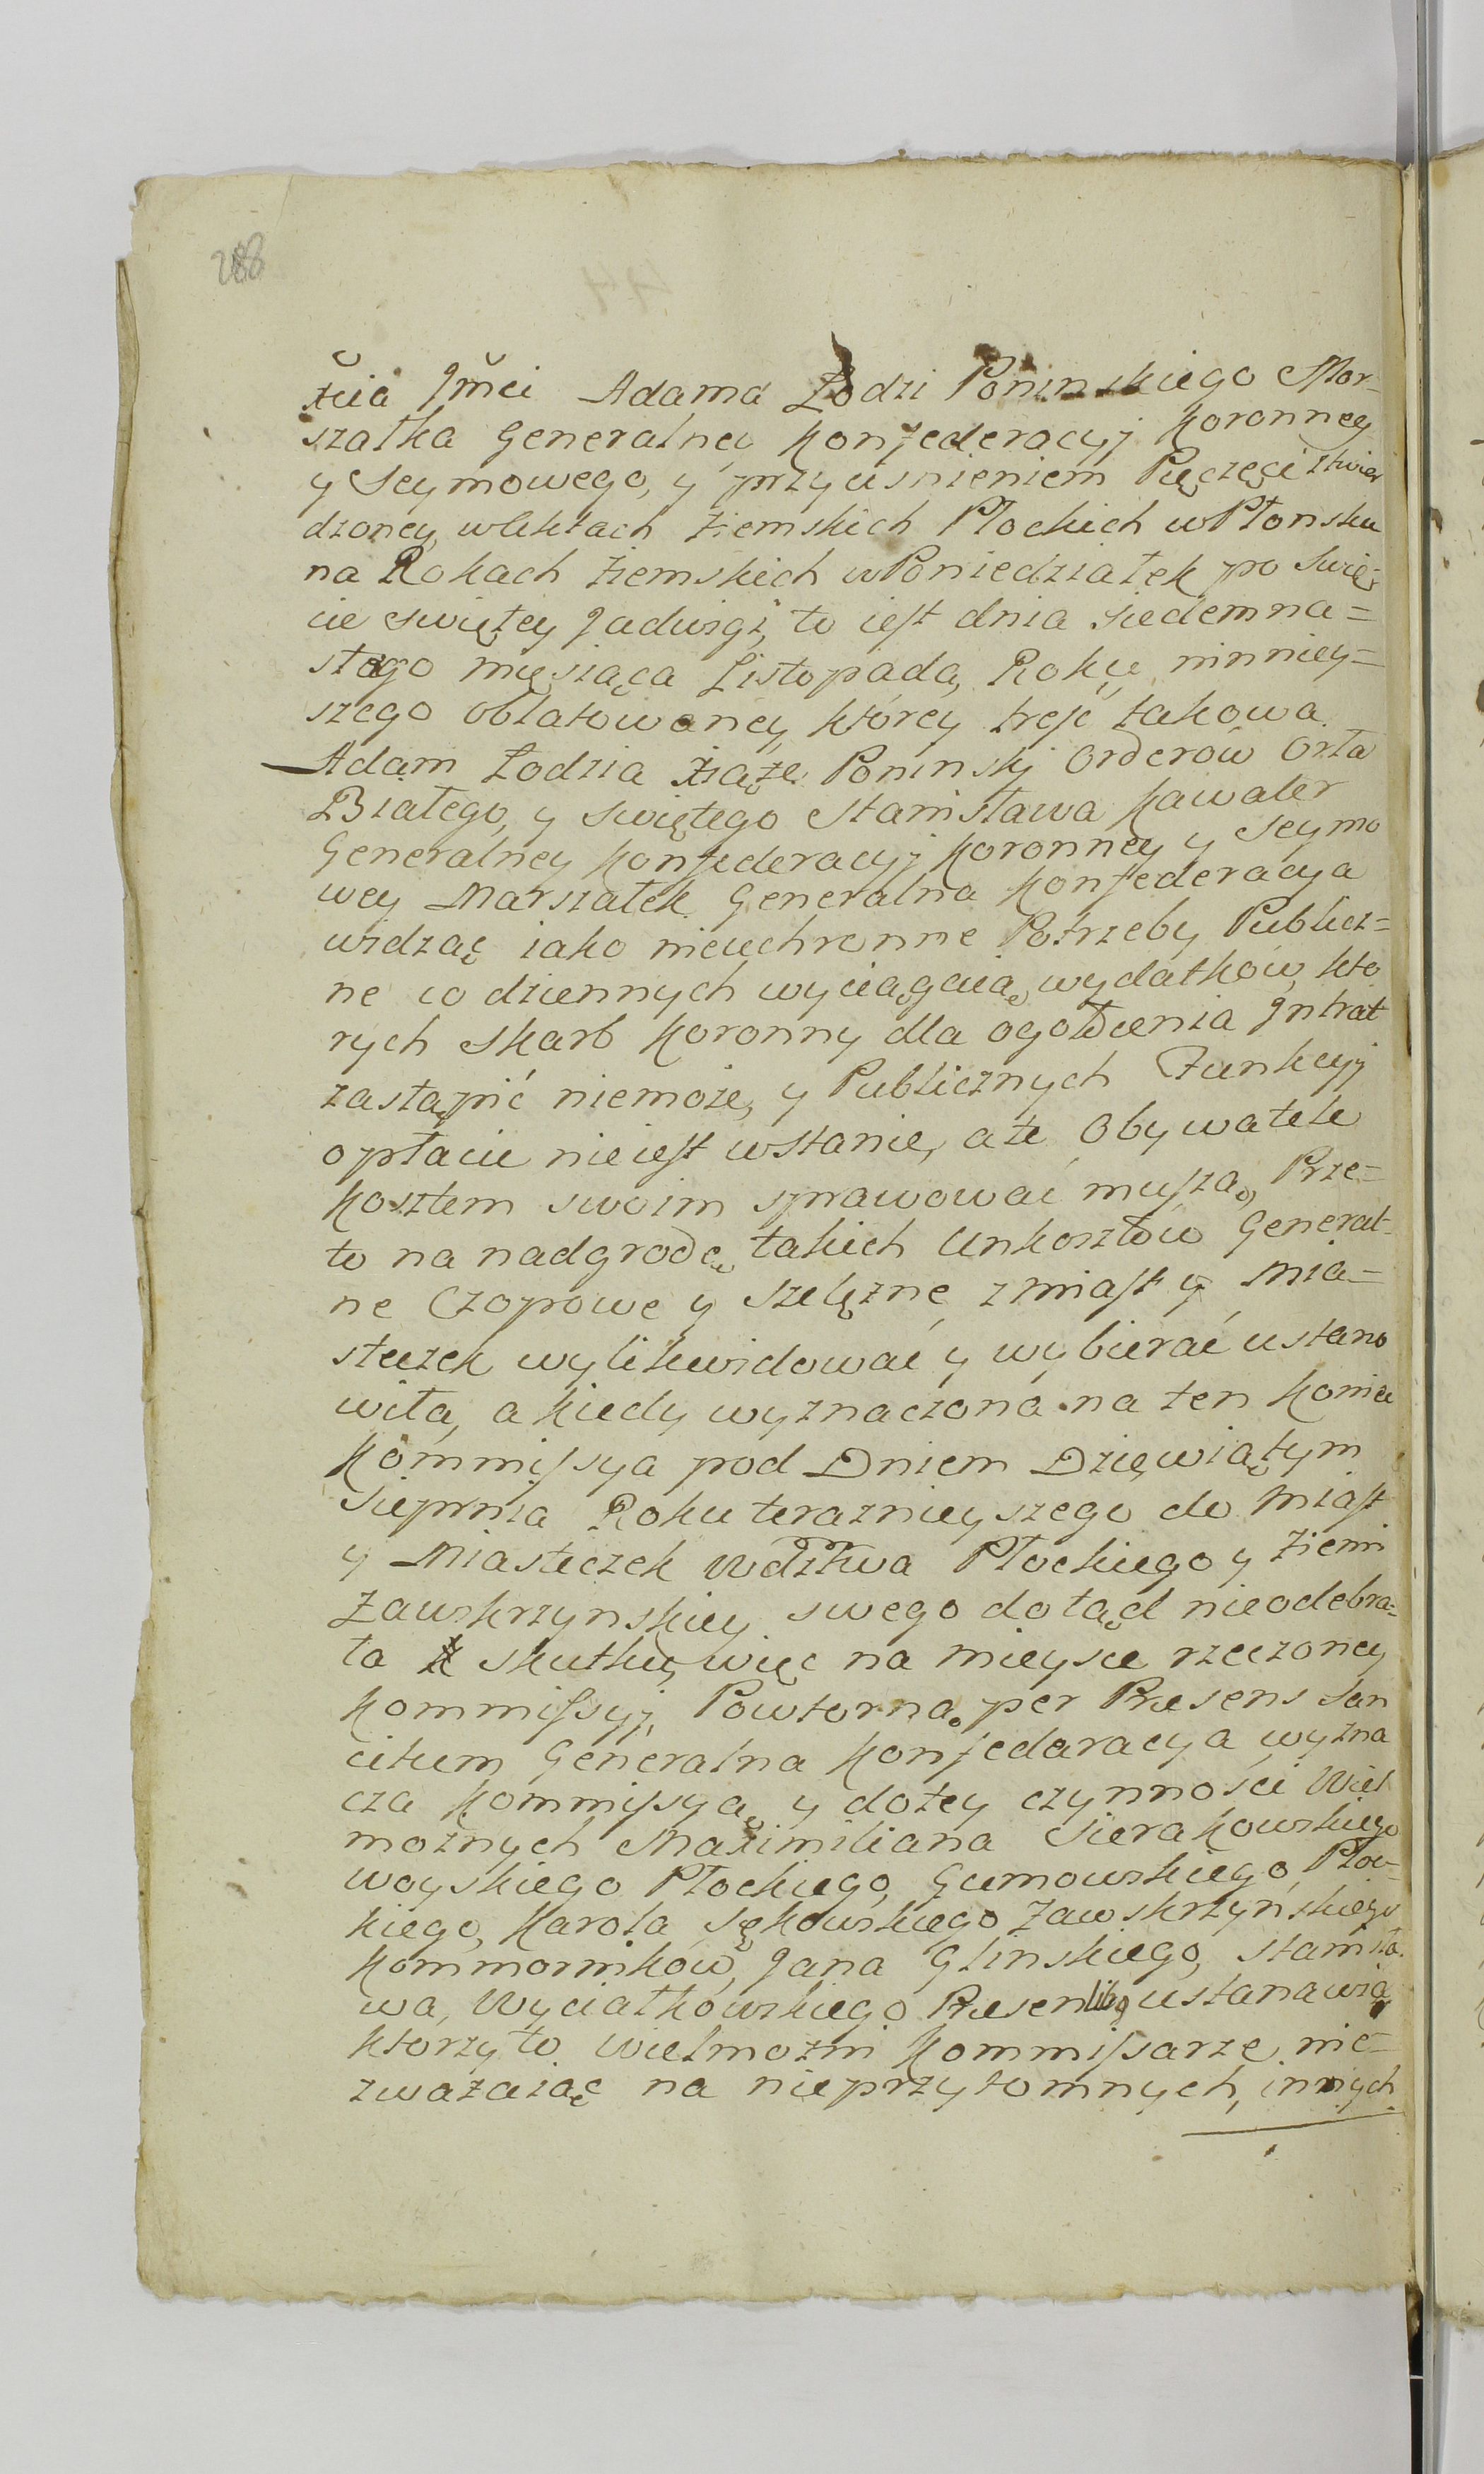 288
Xcia Jmci Adama Łodzi Poninskiego Mar-
szałka Generalney Konfederacyj Koronney
y Seymowego, y przyusnieniem Pięczęci ztwier
dzoney, w Aktach Ziemskich Płockich w Płonsku
na Rokach Ziemskich w Poniedziałek po Swię-
cie Swiętey Jadwigi, to iest dnia Siedemna=
stego Mięsiąca Listopada, Roku ninniey=
szego oblatowaney, ktorey tresc takowa.
Adam Łodzia Xiąże Poninskj Orderów Orła
Białego, y Swiętego Stanisława Kawaler
Generalney Konfederacyj Koronney y Seymo
wey Marszałek. Generalna Konfederacya
widząc iako nieuchronne Potrzeby Publicz=
ne codziennych wyciągaią wydatków, kto
rych Skarb Koronny dla ogołocenia Jntrat
zastąpić niemoże, y Publicznych Funkcyj
opłacic nieiest wstanie, ale Obywatele
kosztem swoim sprawować muszą, Prze=
to na nadgrodę takich Unkosztów General-
ne Czopowe y Szelęzne z Miast y Mia=
steczek wylikwidować y wybierać ustano
wiła, a kiedy wyznaczona na ten koniec
Kommissya pod Dniem Dziewiątym
Sierpnia Roku teraznieyszego do Miast
y Miasteczek Wdztwa Płockiego y Ziemi
Zawskrzynskiey swego dotąd nieodebra=
ła skutku, więc na mieysce rzeczoney
Kommissyj, Powtorną per Præsens San
citum Generalna Konfedaracya wyzna
cza Kommissyą, y do tey czynności Wiel
możnych Maximiliana Sierakowskiego
Woyskiego Płockiego, Gumowskiego Płoc-
kiego, Karola Sękowskiego Zawskrzyńskiego
Kommorników, Jana Glinskiego, Stanisła
wa, Wyciałkowskiego Præsentibg ustanawia
ktorzy to Wielmożni Kommissarze nie-
zważaiąc na nieprzytomnych, innych